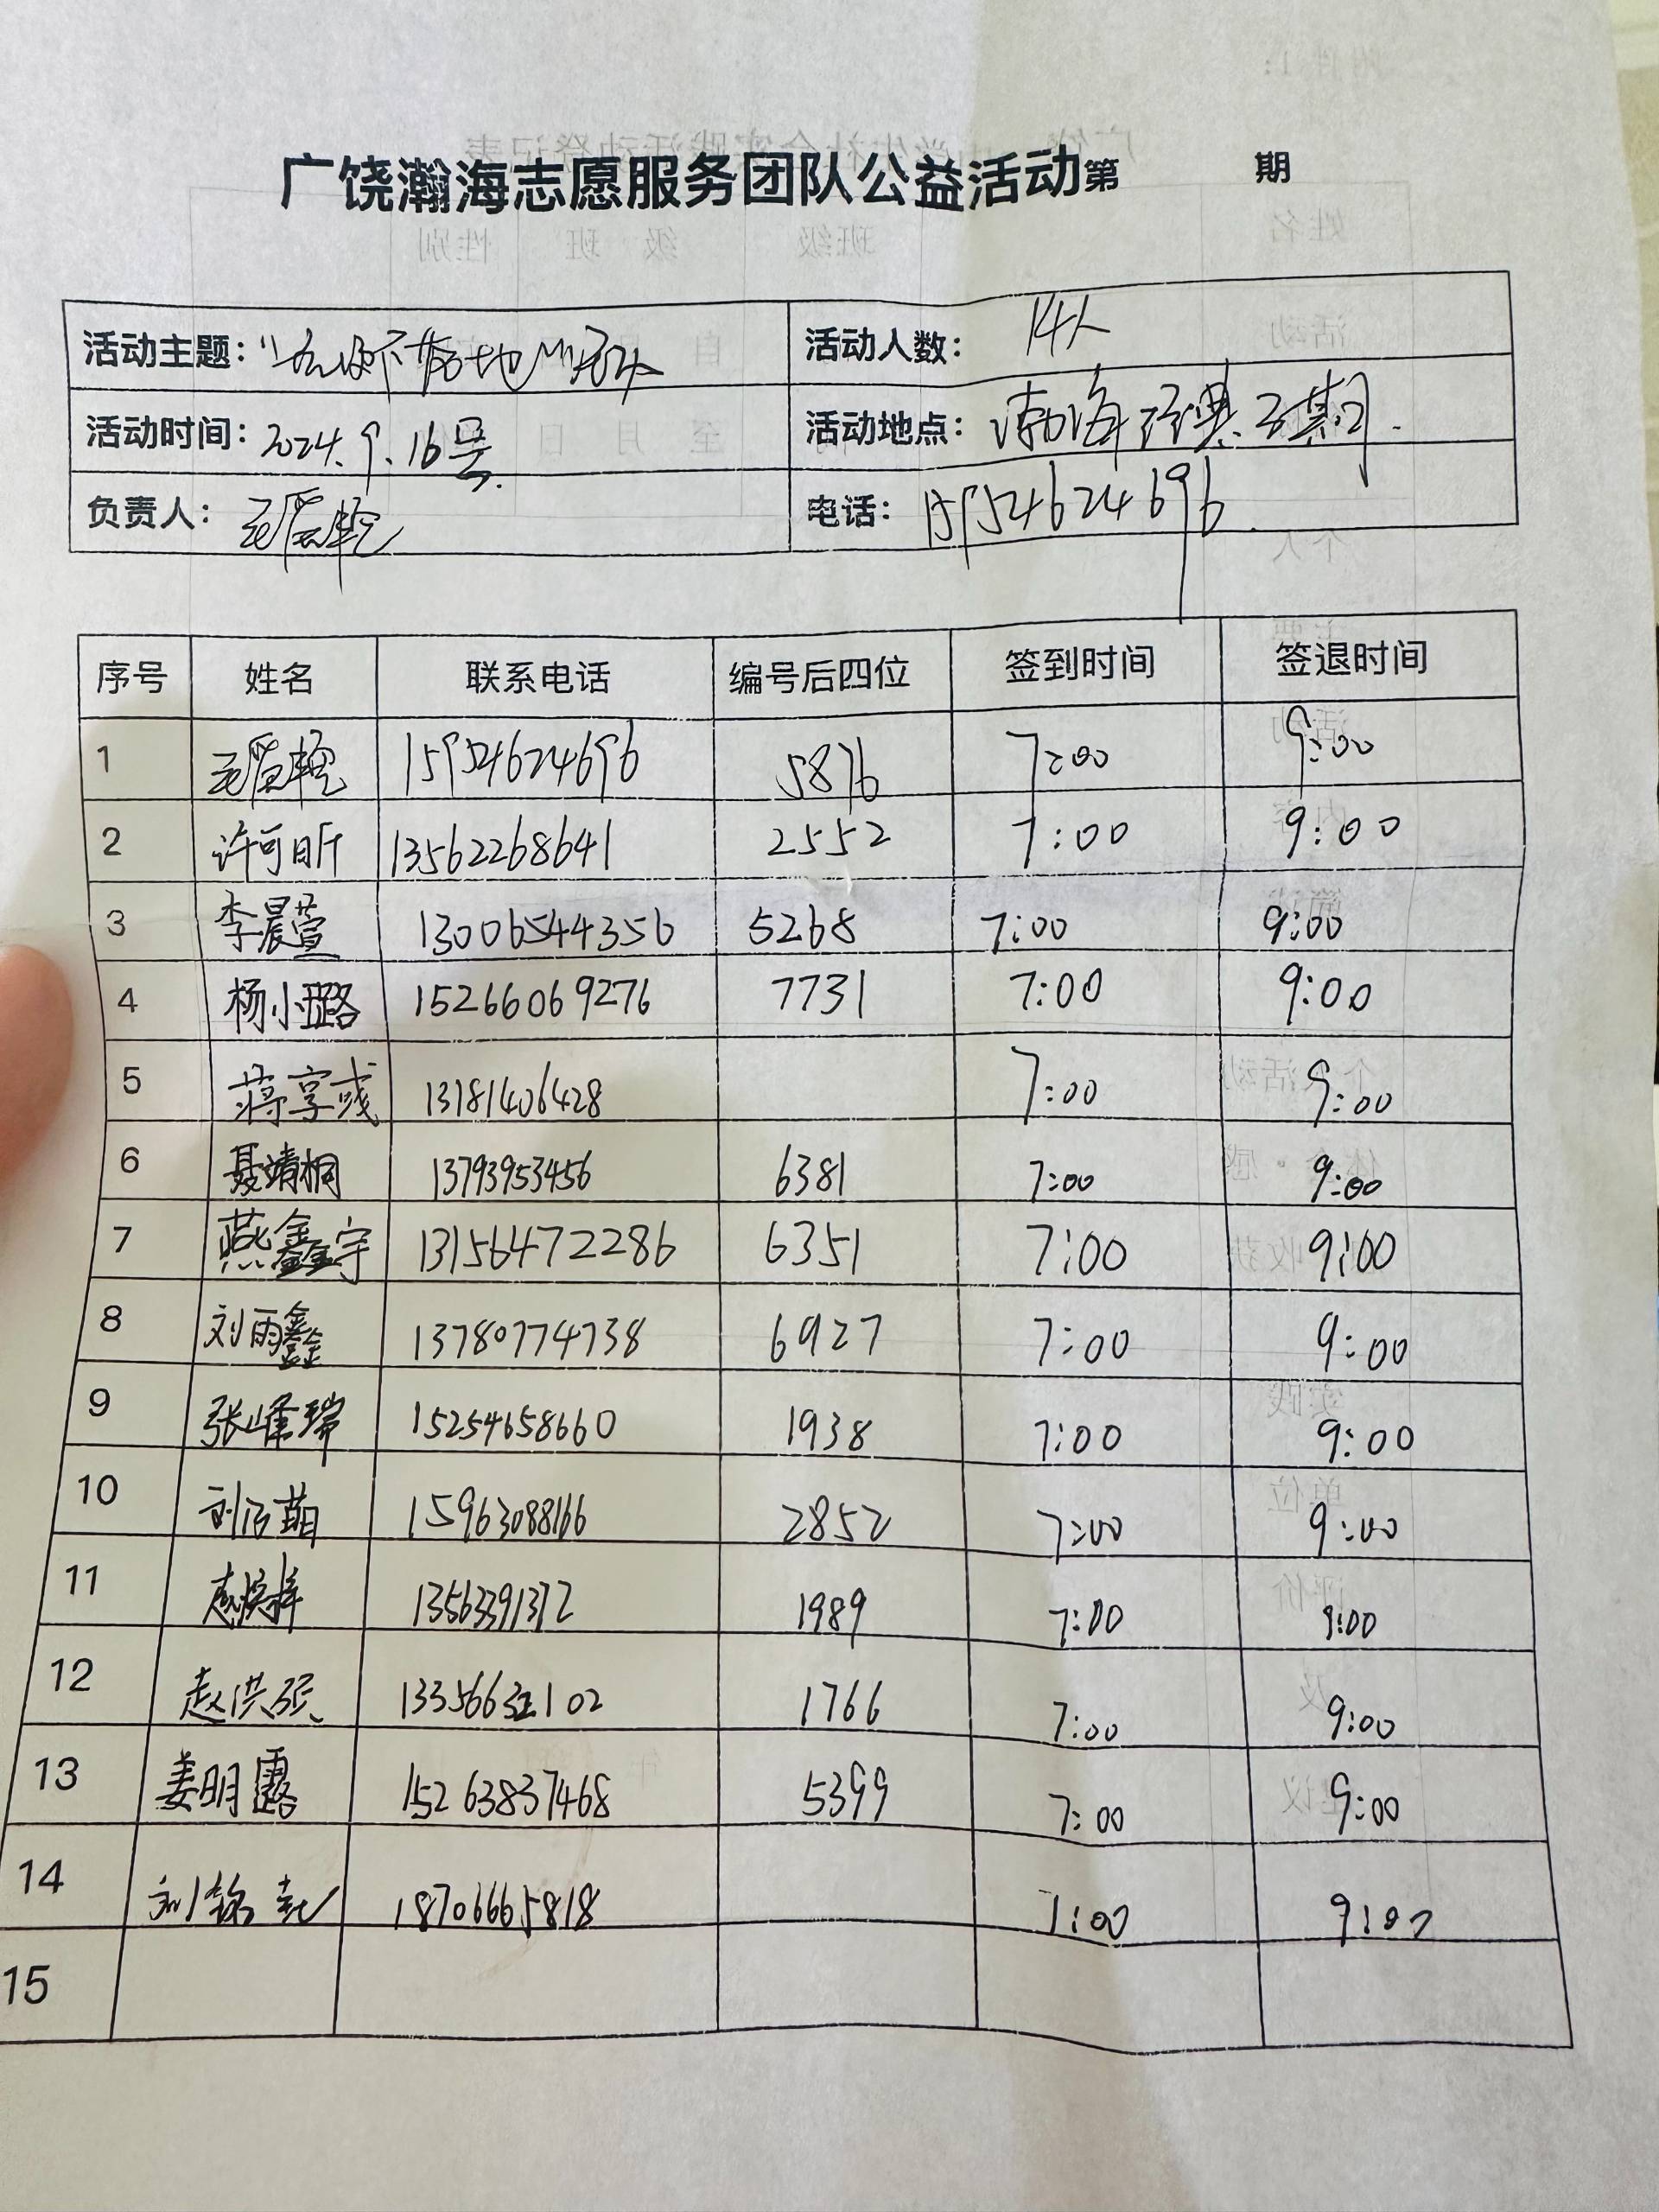 广饶瀚海志愿服务团队公益活动第 期
活动主题: 活动人数: 14人
活动时间: 2024.9.16号. 活动地点: 渤海经典二期.
负责人: 电话: 15954624696
序号 姓名 联系电话 编号后四位 签到时间 签退时间
1 15954624696 5876 7:00 9:00
2 许可昕 13562268641 2552 7:00 9:00
3 李晨萱 13006544356 5268 7:00 9:00
4 杨小璐 15266069276 7731 7:00 9:00
5 蒋享彧 13181406428 7:00 9:00
6 聂靖桐 13793953456 6381 7:00 9:00
7 燕鑫宇 13156472286 6351 7:00 9:00
8 刘雨鑫 13780774738 6927 7:00 9:00
9 张峰瑞 15254658660 1938 7:00 9:00
10 15963088166 2852 7:00 9:00
11 1989 7:00 9:00
12 赵洪强 1766 7:00 9:00
13 姜明露 15263837468 5399 7:00 9:00
14 18706665818 7:00 9:00
15